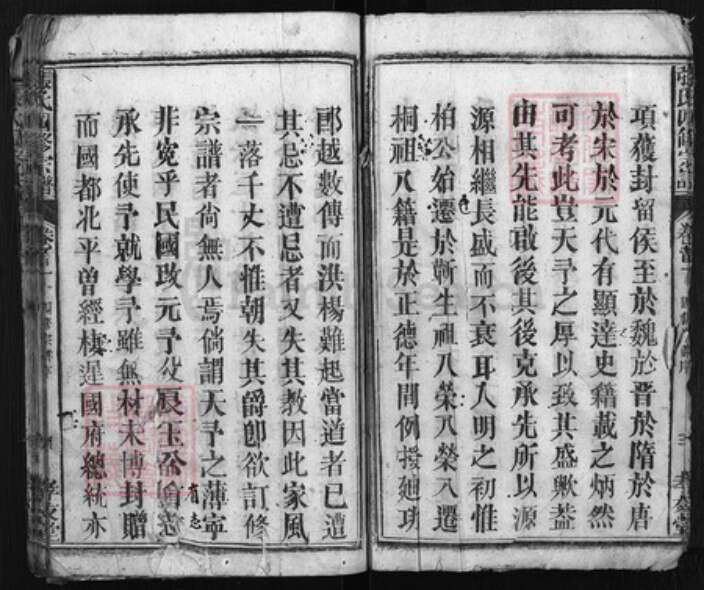 項獲封留侯至於魏於晋於隋於唐
於宋於元代有顯達史籍載之炳然
可考此豈天予之厚以致其盛歟葢
由其先能啟後其後克承先所以源
源相繼長盛而不衰耳入明之初惟
柏公始遷於蘄生祖八榮八榮入遷
桐祖入籍是於正德年間例授廻功
郎越數傳而洪楊難起當道者已遭
其忌不遭忌者又失其教因此家風
一落千丈不惟朝失其爵卽欲訂修
宗譜者尙無人焉倘謂天予之薄寜
非寃乎民國改元予父艮玉公
有志
承先使予就學予雖無材未博封贈
而國都北平曾經棲遲國府總統亦
張氏四修宗譜
孝友堂